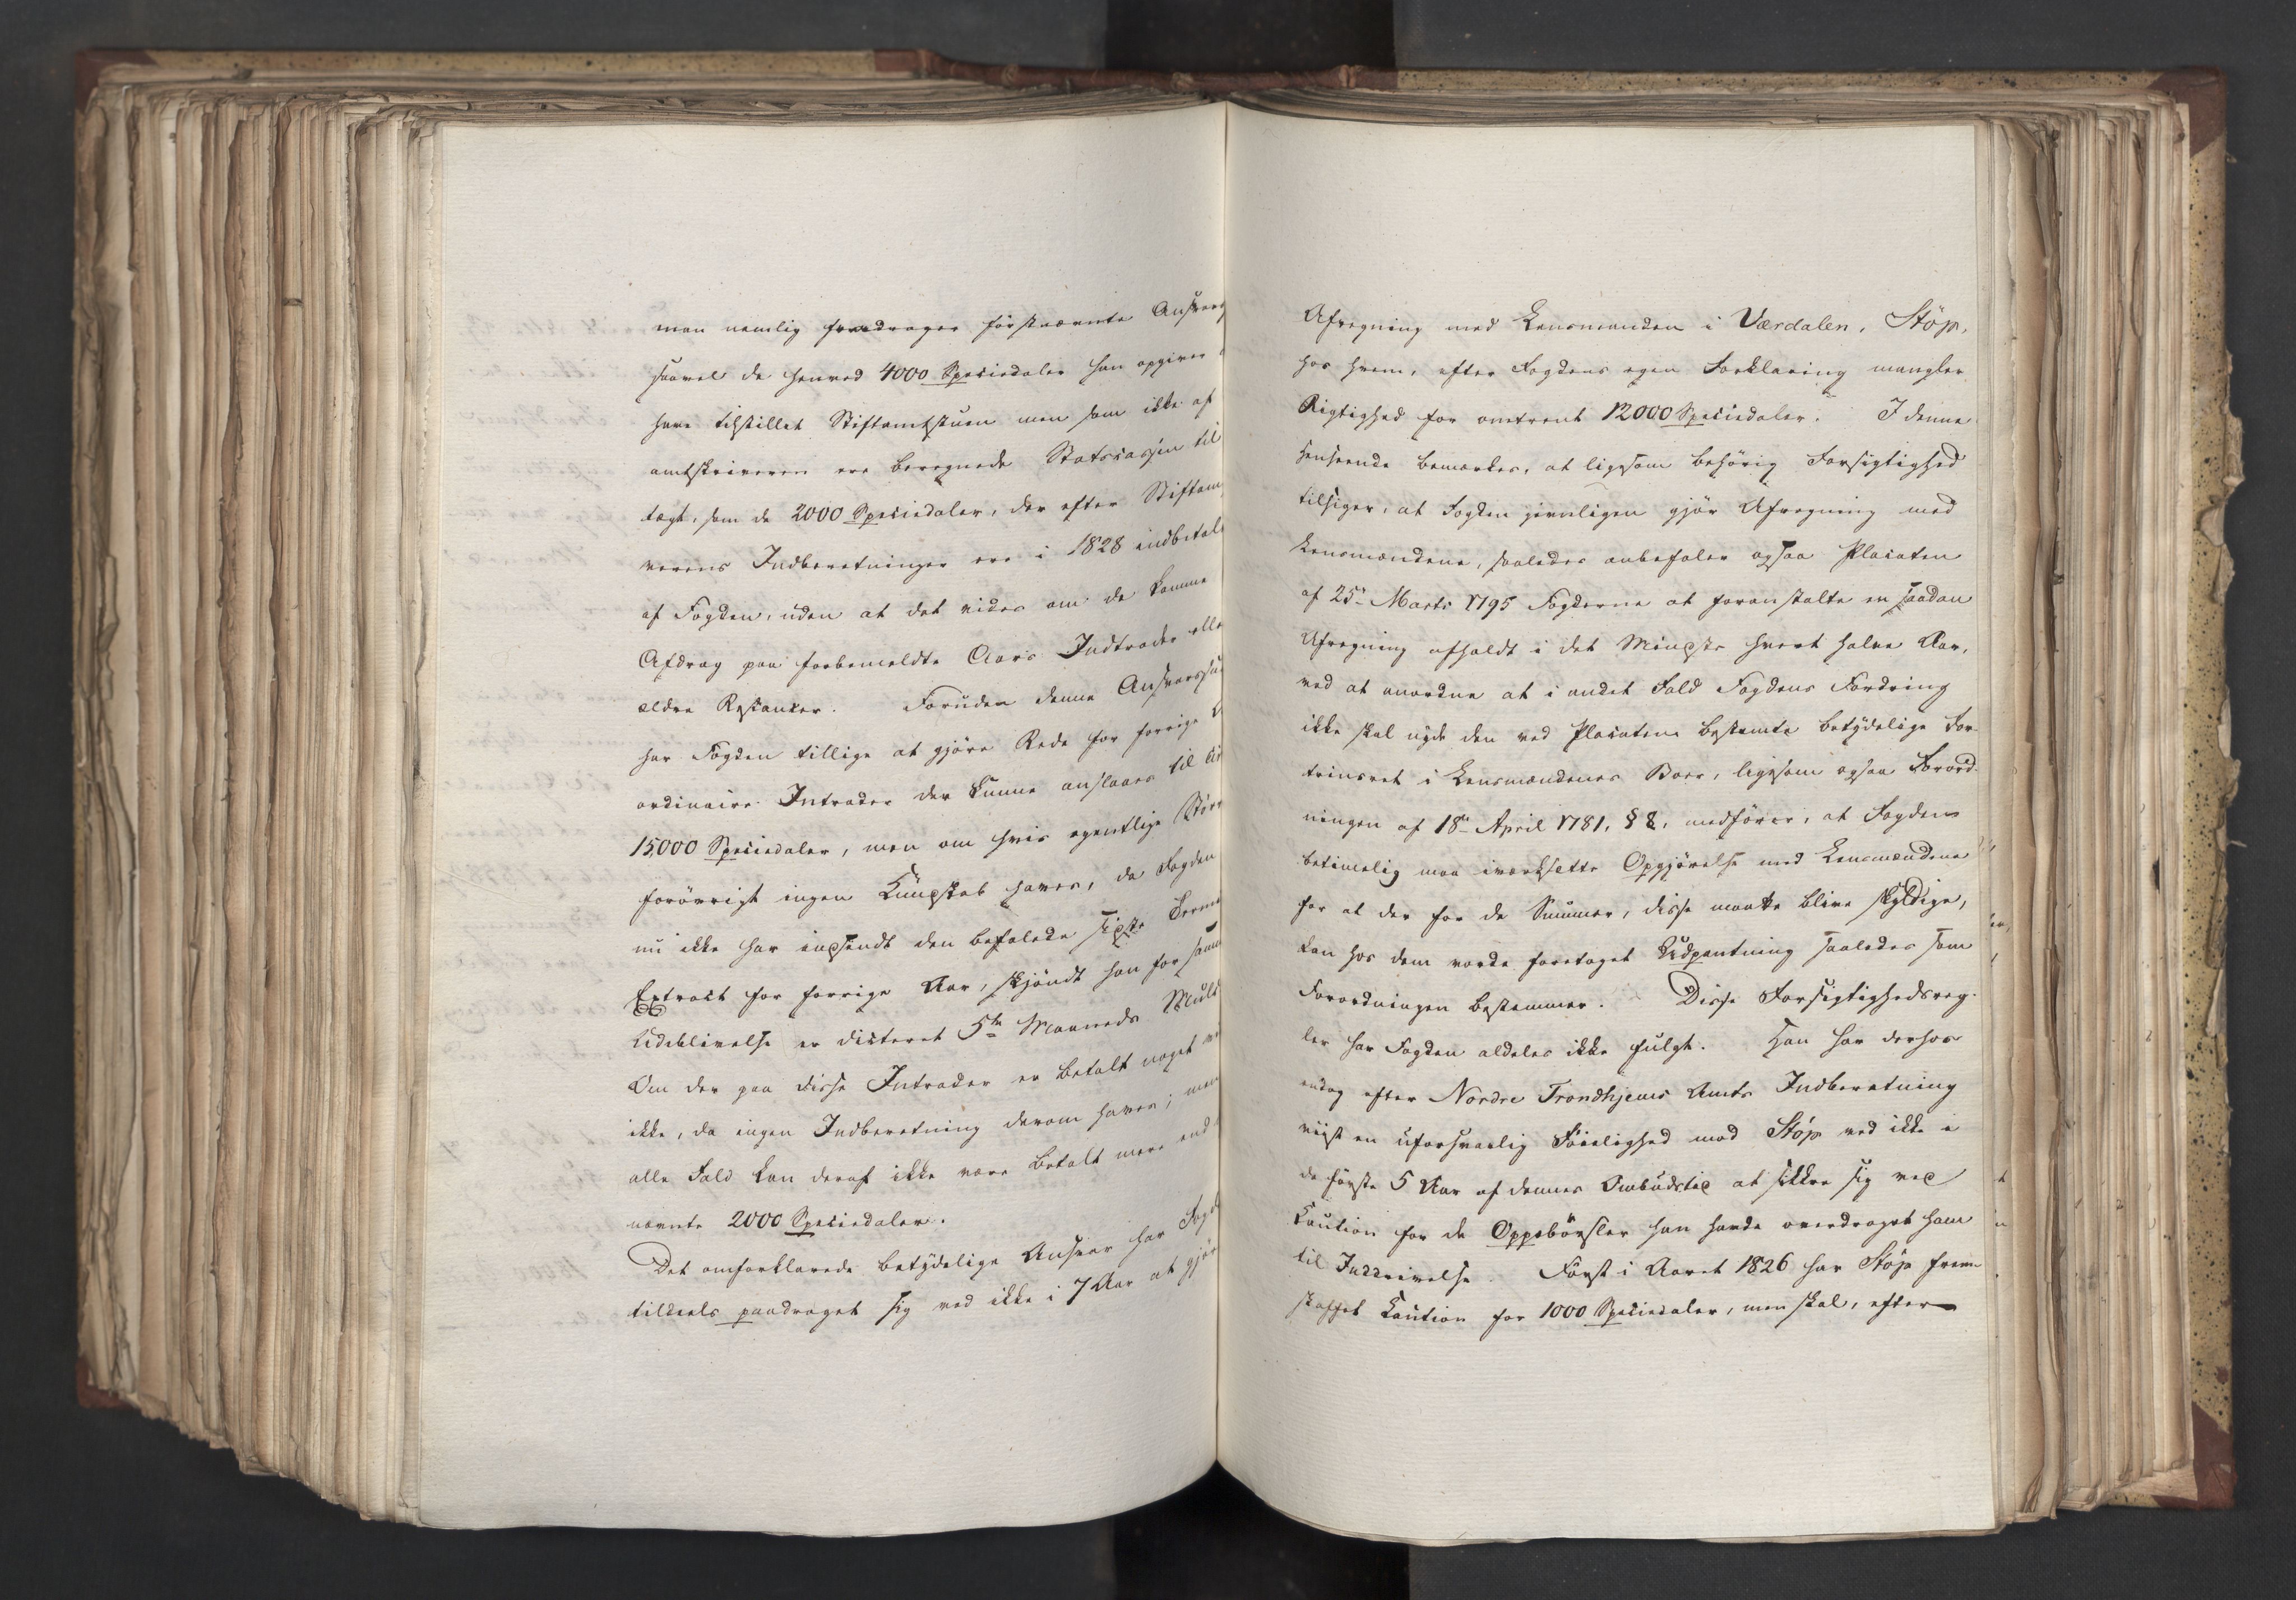 man nemlig fradrager førstnævnte Ansvar
saavel de henved 4000 Speciedaler han opgiver
have tilstillet Stiftamtstuen men som ikke af
amtskriveren ere beregnede Statscassen til
tægt, som de 2000 Speciedaler, der efter Stiftam
verens Indberetninger ere i 1828 indbetal
af Fogden, uden at det vides om de komme
Afdrag paa forbemeldte Aars Indtrader elle
ældre Restancer. Foruden denne Ansvarssu
har Fogden tillige at gjöre Rede for forrige
ordinaire Intrader der kunne anslaaes til
15,000 Speciedaler, men om hvis egentlige Störr
forövrigt ingen Kundskab haves, da Fogden
nu ikke har indsendt den befalede sidste Termi
Extract for forrige Aar, skjöndt han for sam
Udeblivelse er dicteret 5te Maaneds Mulct
Om der paa disse Intrader er betalt noget
ikke, da ingen Indberetning derom haves; men
alle Fald kan deraf ikke være betalt mere end
nævnte 2000 Speciedaler.
Det omforklarede betydelige Ansvar har Fogd
tildeels paadraget sig ved ikke i 7 Aar at gjör
Afregning med Lensmanden i Værdalen, Stöp,
hos hvem, efter Fogdens egen Forklaring mangler
Rigtighed for omtrent 12000 Speciedaler. I denne
Henseende bemærkes, at ligesom behörig Forsigtighed
tilsiger, at Fogden jevnligen gjör Afregning med
Lensmændene, saaledes anbefaler ogsaa Placaten
af 25de Marts 1795 Fogderne at foranstalte en saadan
Afregning afholdt i det Mindste hvert halve Aar,
ved at anordne at i andet Fald Fogdens Fordring
ikke skal nyde den ved Placaten bestemte betydelige For-
trinsret i Lensmændenes Boer, ligesom ogsaa Forord-
ningen af 18de April 1781, § 8, medförer, at Fogden
betimelig maa iværksætte Opgjörelse med Lensmændene
for at der for de Summer, disse maatte blive skyldige,
kan hos dem vorde foretaget Udpantning saaledes som
Forordningen bestemmer. Disse Forsigtighedsreg-
ler har Fogden aldeles ikke fulgt. Han har derhos
endog efter Nordre Trondhjems Amts Indberetning
viist en uforsvarlig Föielighed mod Stöp ved ikke i
de förste 5 Aar af dennes Ombudstid at sikkre sig ved
Caution for de Oppebörsler han havde overdraget ham
til Inddrivelse. Först i Aaret 1826 har Stöp frem
skaffet Caution for 1000 Speciedaler, men skal, efter